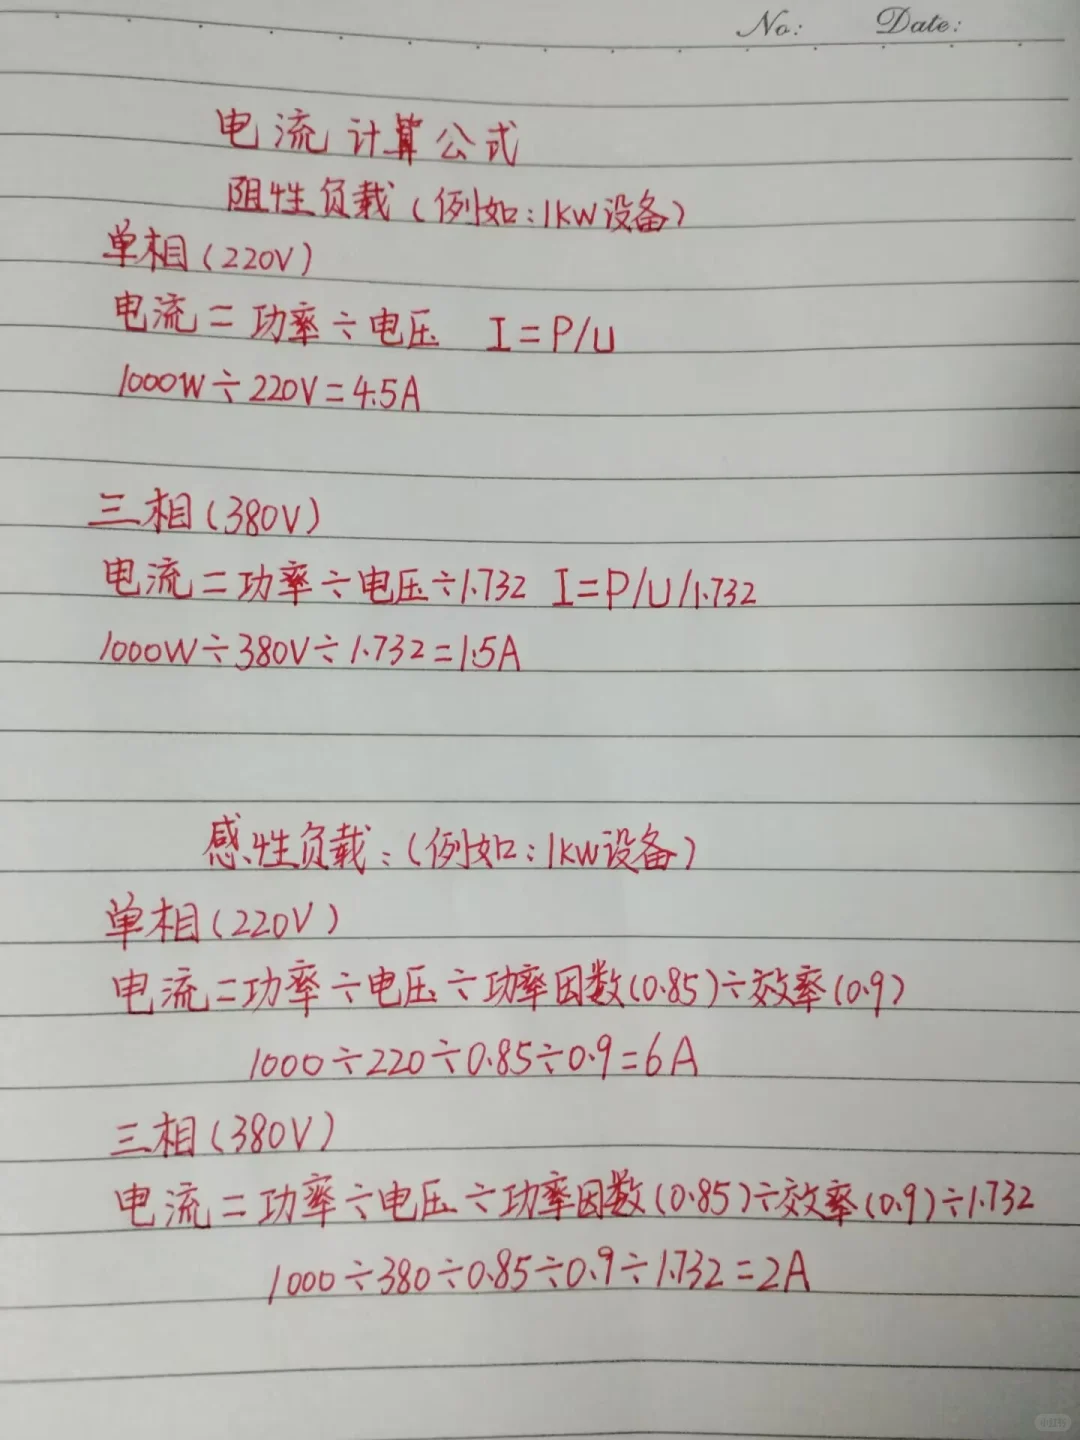 No: Date:
电流计算公式
阻性负载(例如:1KW设备)
单相(220V)
电流=功率÷电压 I=P/U
1000W÷220V=4.5A
三相(380V)
电流=功率÷电压÷1.732 I=P/U/1.732
1000W÷380V÷1.732=1.5A
感性负载:(例如:1KW设备)
单相(220V)
电流=功率÷电压÷功率因数(0.85)÷效率(0.9)
1000÷220÷0.85÷0.9=6A
三相(380V)
电流=功率÷电压÷功率因数(0.85)÷效率(0.9)÷1.732
1000÷380÷0.85÷0.9÷1.732=2A
小红书